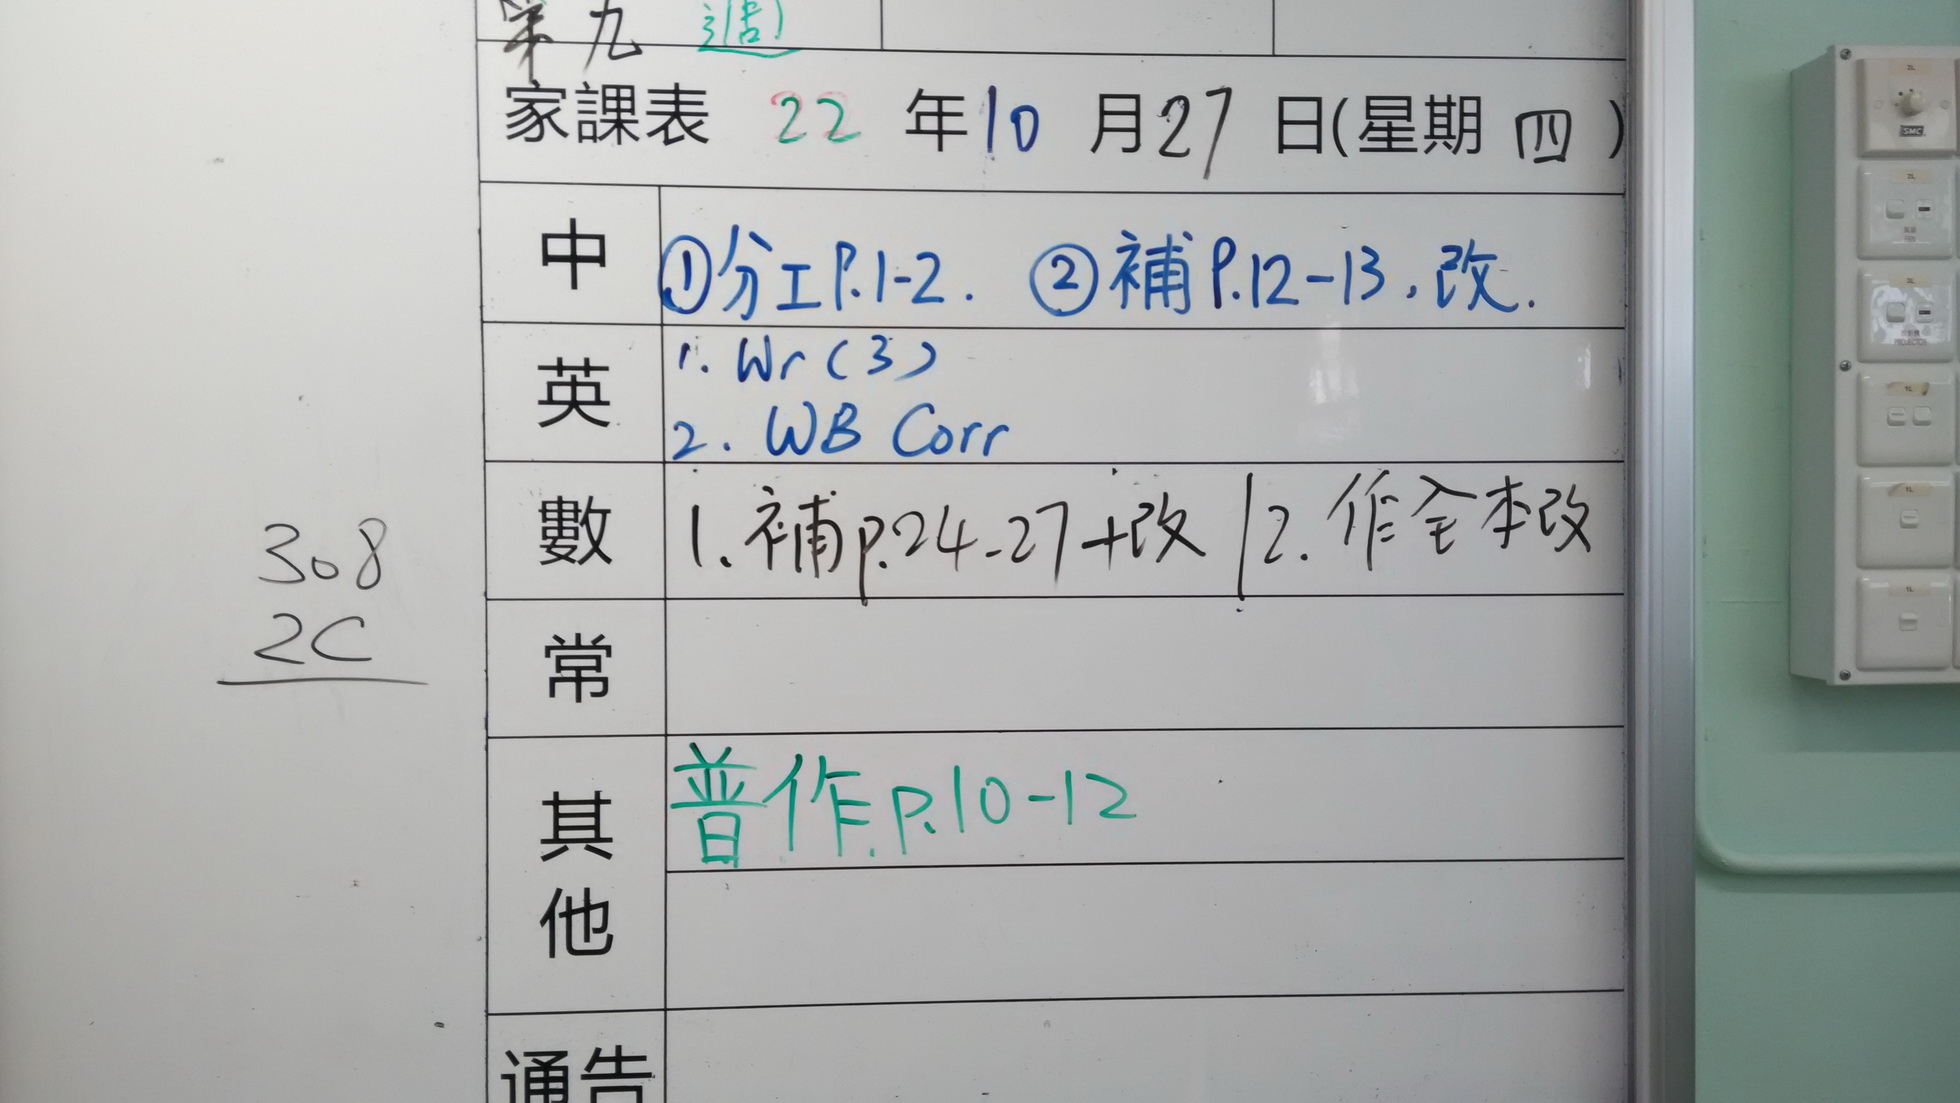 第九週
家課表 22 年10 月27 日(星期 四 )
中 ①分工P.1-2. ②補P.12-13,改.
英 1. Wr (3)
2. WB Corr
數 1.補p.24-27+改/2.作全本改
308
2C
常
其他 普作.P.10-12
通告
SMC
PROJECTOR